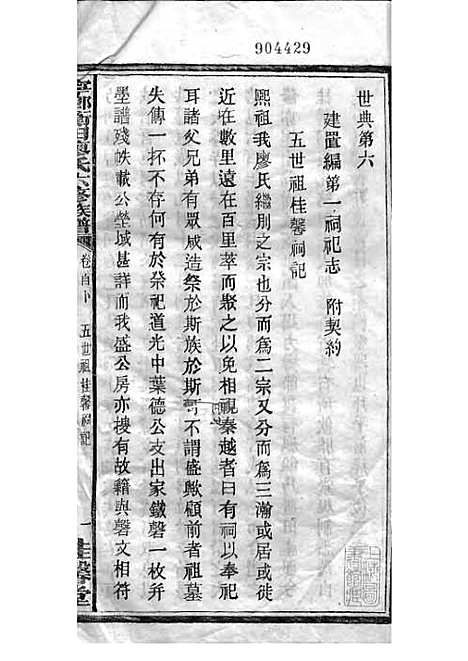 904429
世典第六
建置編第一祠祀志 附契約
五世祖桂馨祠記
熙祖我廖氏繼別之宗也分而為二宗又分而為三瀚或居或徙
近在數里遠在百里萃而聚之以免相視秦越者曰有祠以奉祀
耳諸父兄弟有眾咸造祭於斯族於斯哿不謂盛歟顧前者祖墓
失傳一抔不存何有於祭祀道光中葉德公支出家鐵磬一枚并
墨譜殘帙載公塋域甚詳而我盛公房亦摟有故籍與磬文相符
寧鄉衡田廖氏六修族譜
卷首卜
五世祖桂馨祠記
一
桂馨堂